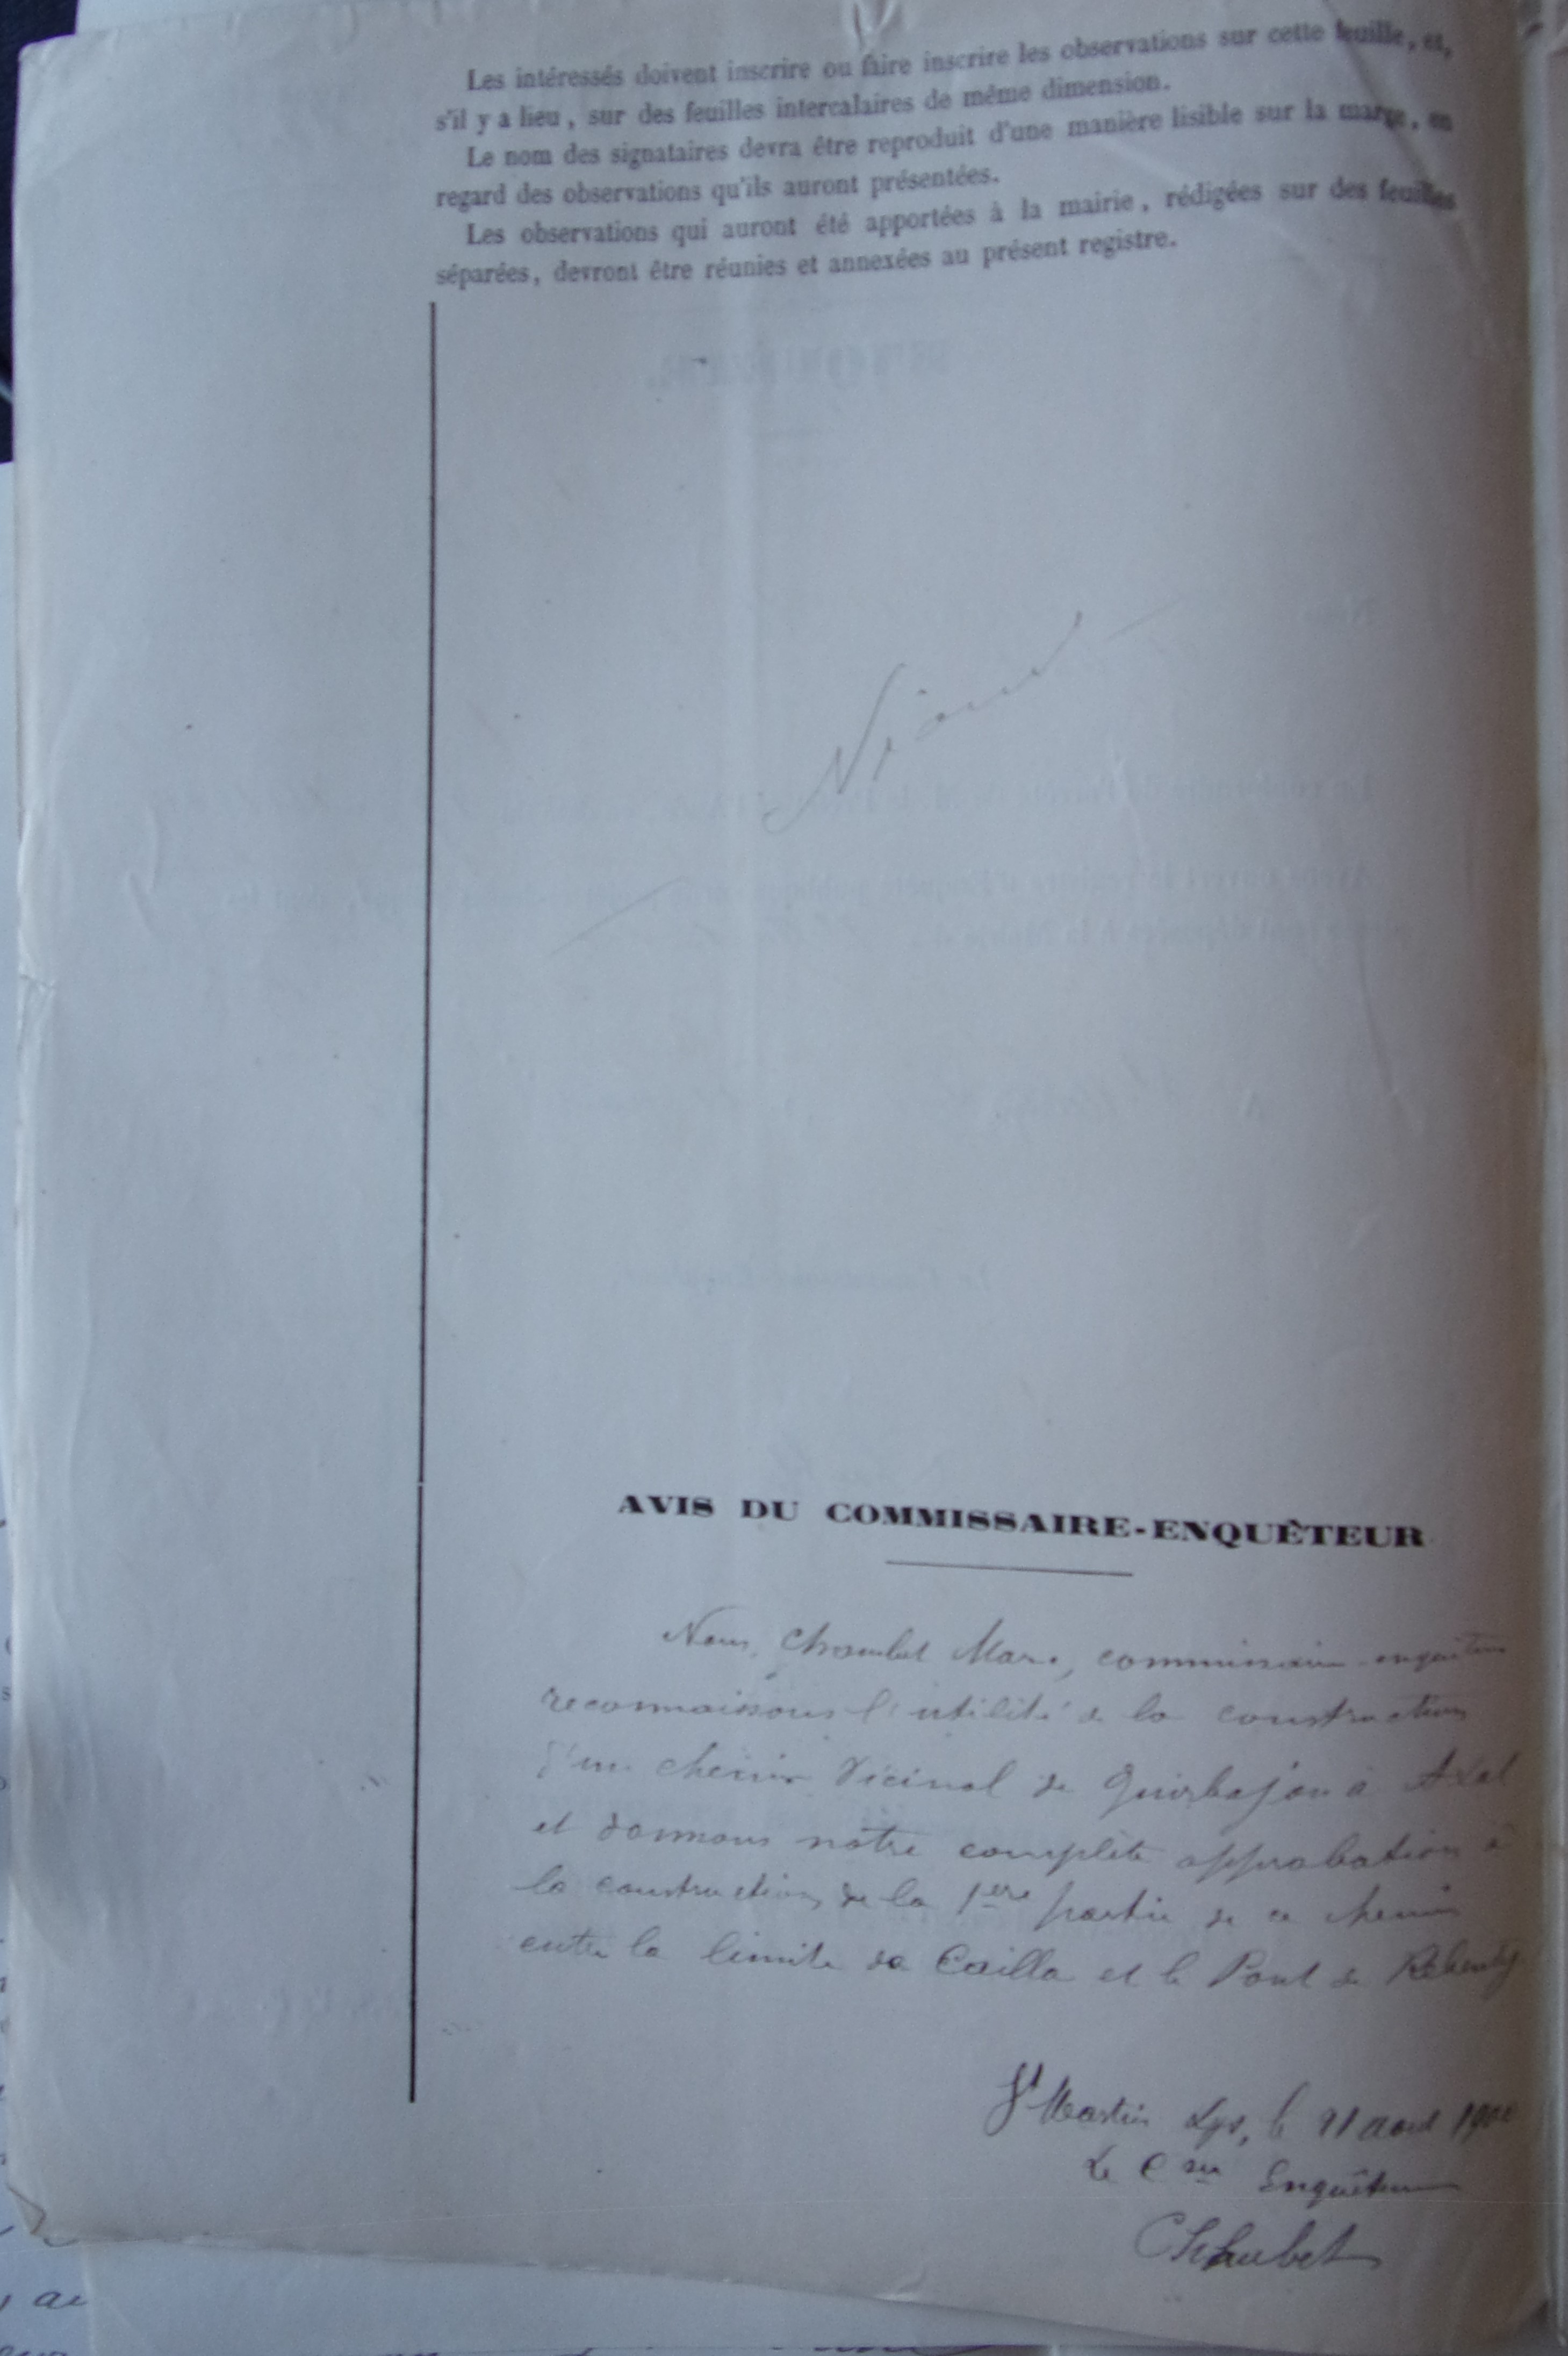 Les intéressés doivent inscrire ou faire inscrire les observations sur cette feuille, et,
s'il y a lieu, sur des feuilles intercalaires de même dimension.
Le nom des signataires devra être reproduit d'une manière lisible sur la marge, en
regard des observations qu'ils auront présentées.
Les observations qui auront été apportées à la mairie, rédigées sur des feuilles
séparées, devront être réunies et annexées au présent registre.
Néant
AVIS DU COMMISSAIRE-ENQUÊTEUR
Nous, Chaubet Marc, commissaire enquêteur
reconnaissons l'utilité de la construction
d'un chemin Vicinal de Quirbajou à Axat
et donnons notre complète approbation à
la construction de la 1ère partie de ce chemin
entre la limite de Cailla et le Pont de Rebenty
St Martin Lys, le 21 aout 1900
Le Cre Enquêteur
Chaubet